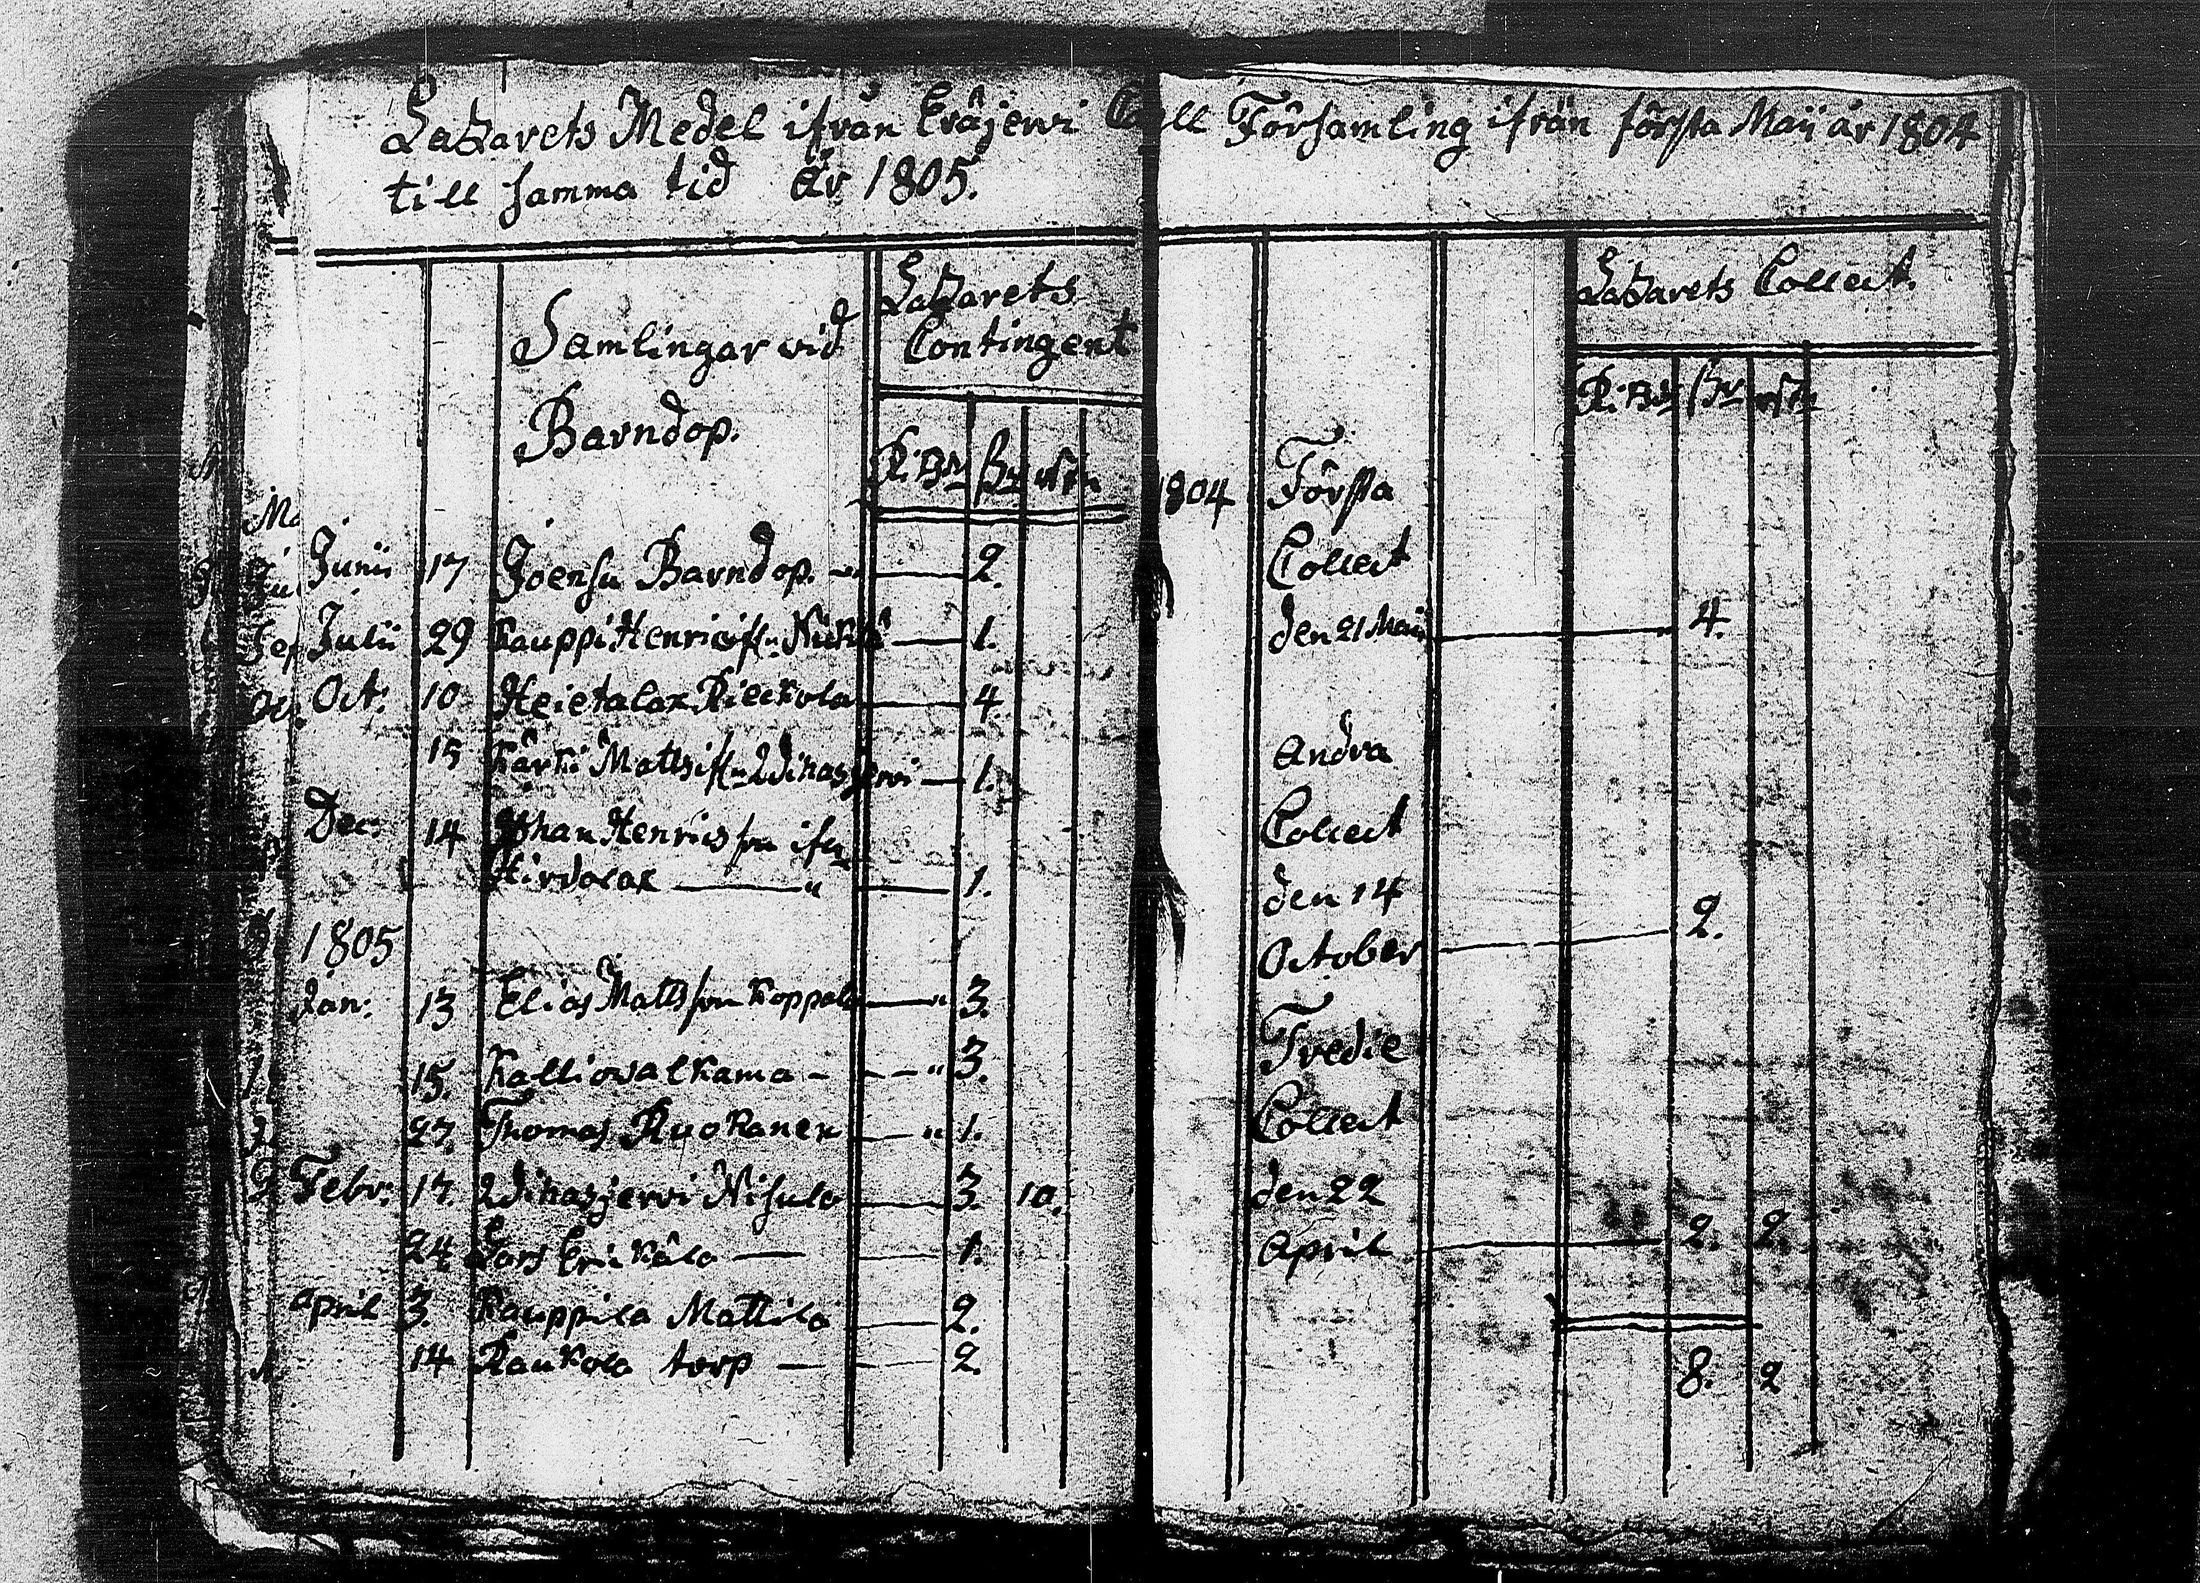 Lazarets Medel ifrån Eräjerwi Capell Församling ifrån första Maii år 1804
till samma tid år 1805.
Samlingar wid
Barndop.
Lazarets
Contingent
R:Bdr ßr
Junii 17 Joensu Barndop. — 2.
Julii 29 Kauppi Henric ifr: — 1.
Oct: 10 Heietalax Pieckola — 4.
15 Kärki Matts ifr: Wihasjerwi — 1.
Dec: 14 Johan Henricsson ifrn
Hirdolax — " — 1.
1805
Jan: 13 Elias Mattsson Koppala — " 3.
15. Kalliovalkama — — " 3.
27. Thomas Ruokanen — " 1.
Febr: 17. Wihasjerwi Nisula — 3. 10.
24 Lars Erickälä — — 1.
April 3. Kauppila Mattila — 2.
14 Raukola torp — — 2.
Lazarets Collect.
R:Bdr ßr
1804 Första
Collect
den 21 Maii — 4.
Andra
Collect
den 14
October — 2.
Tredie
Collect
den 22
April — 2. 2.
8. 2